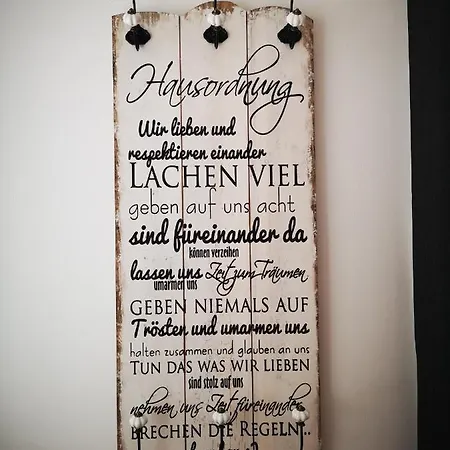 Hausordnung
Wir lieben und
respektieren einander
LACHEN VIEL
geben auf uns acht
sind füreinander da
können verzeihen
lassen uns Zeit zum Träumen
umarmen uns
GEBEN NIEMALS AUF
Trösten und umarmen uns
halten zusammen und glauben an uns
TUN DAS WAS WIR LIEBEN
sind stolz auf uns
nehmen uns Zeit füreinander
BRECHEN DIE REGELN...